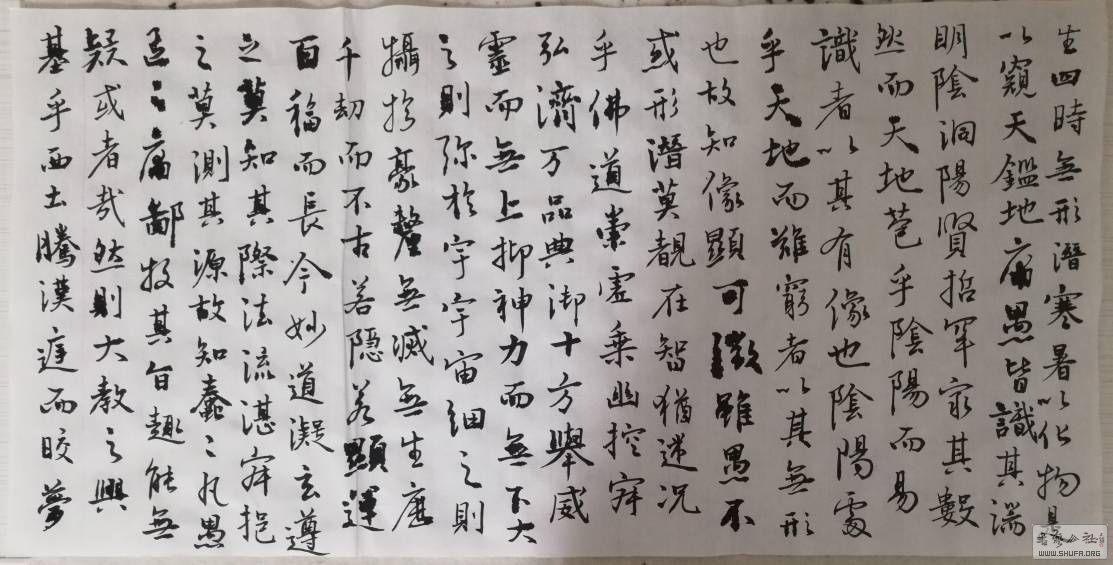 生四時無形潛寒暑以化物是
以窺天鑑地庸愚皆識其端
明陰洞陽賢哲罕窮其數
然而天地苞乎陰陽而易
識者以其有像也陰陽處
乎天地而難窮者以其無形
也故知像顯可徵雖愚不
或形潛莫覩在智猶迷況
乎佛道崇虛乘幽控寂
弘濟万品典御十方舉威
靈而無上抑神力而無下大
之則弥於宇宇宙細之則
攝於豪釐無滅無生歷
千劫而不古若隱若顯運
百福而長今妙道凝玄遵
之莫知其際法流湛寂挹
之莫測其源故知蠢〻凡愚
區〻庸鄙投其旨趣能無
疑或者哉然則大教之興
基乎西土騰漢庭而皎夢
WWW.SHUFA.ORG